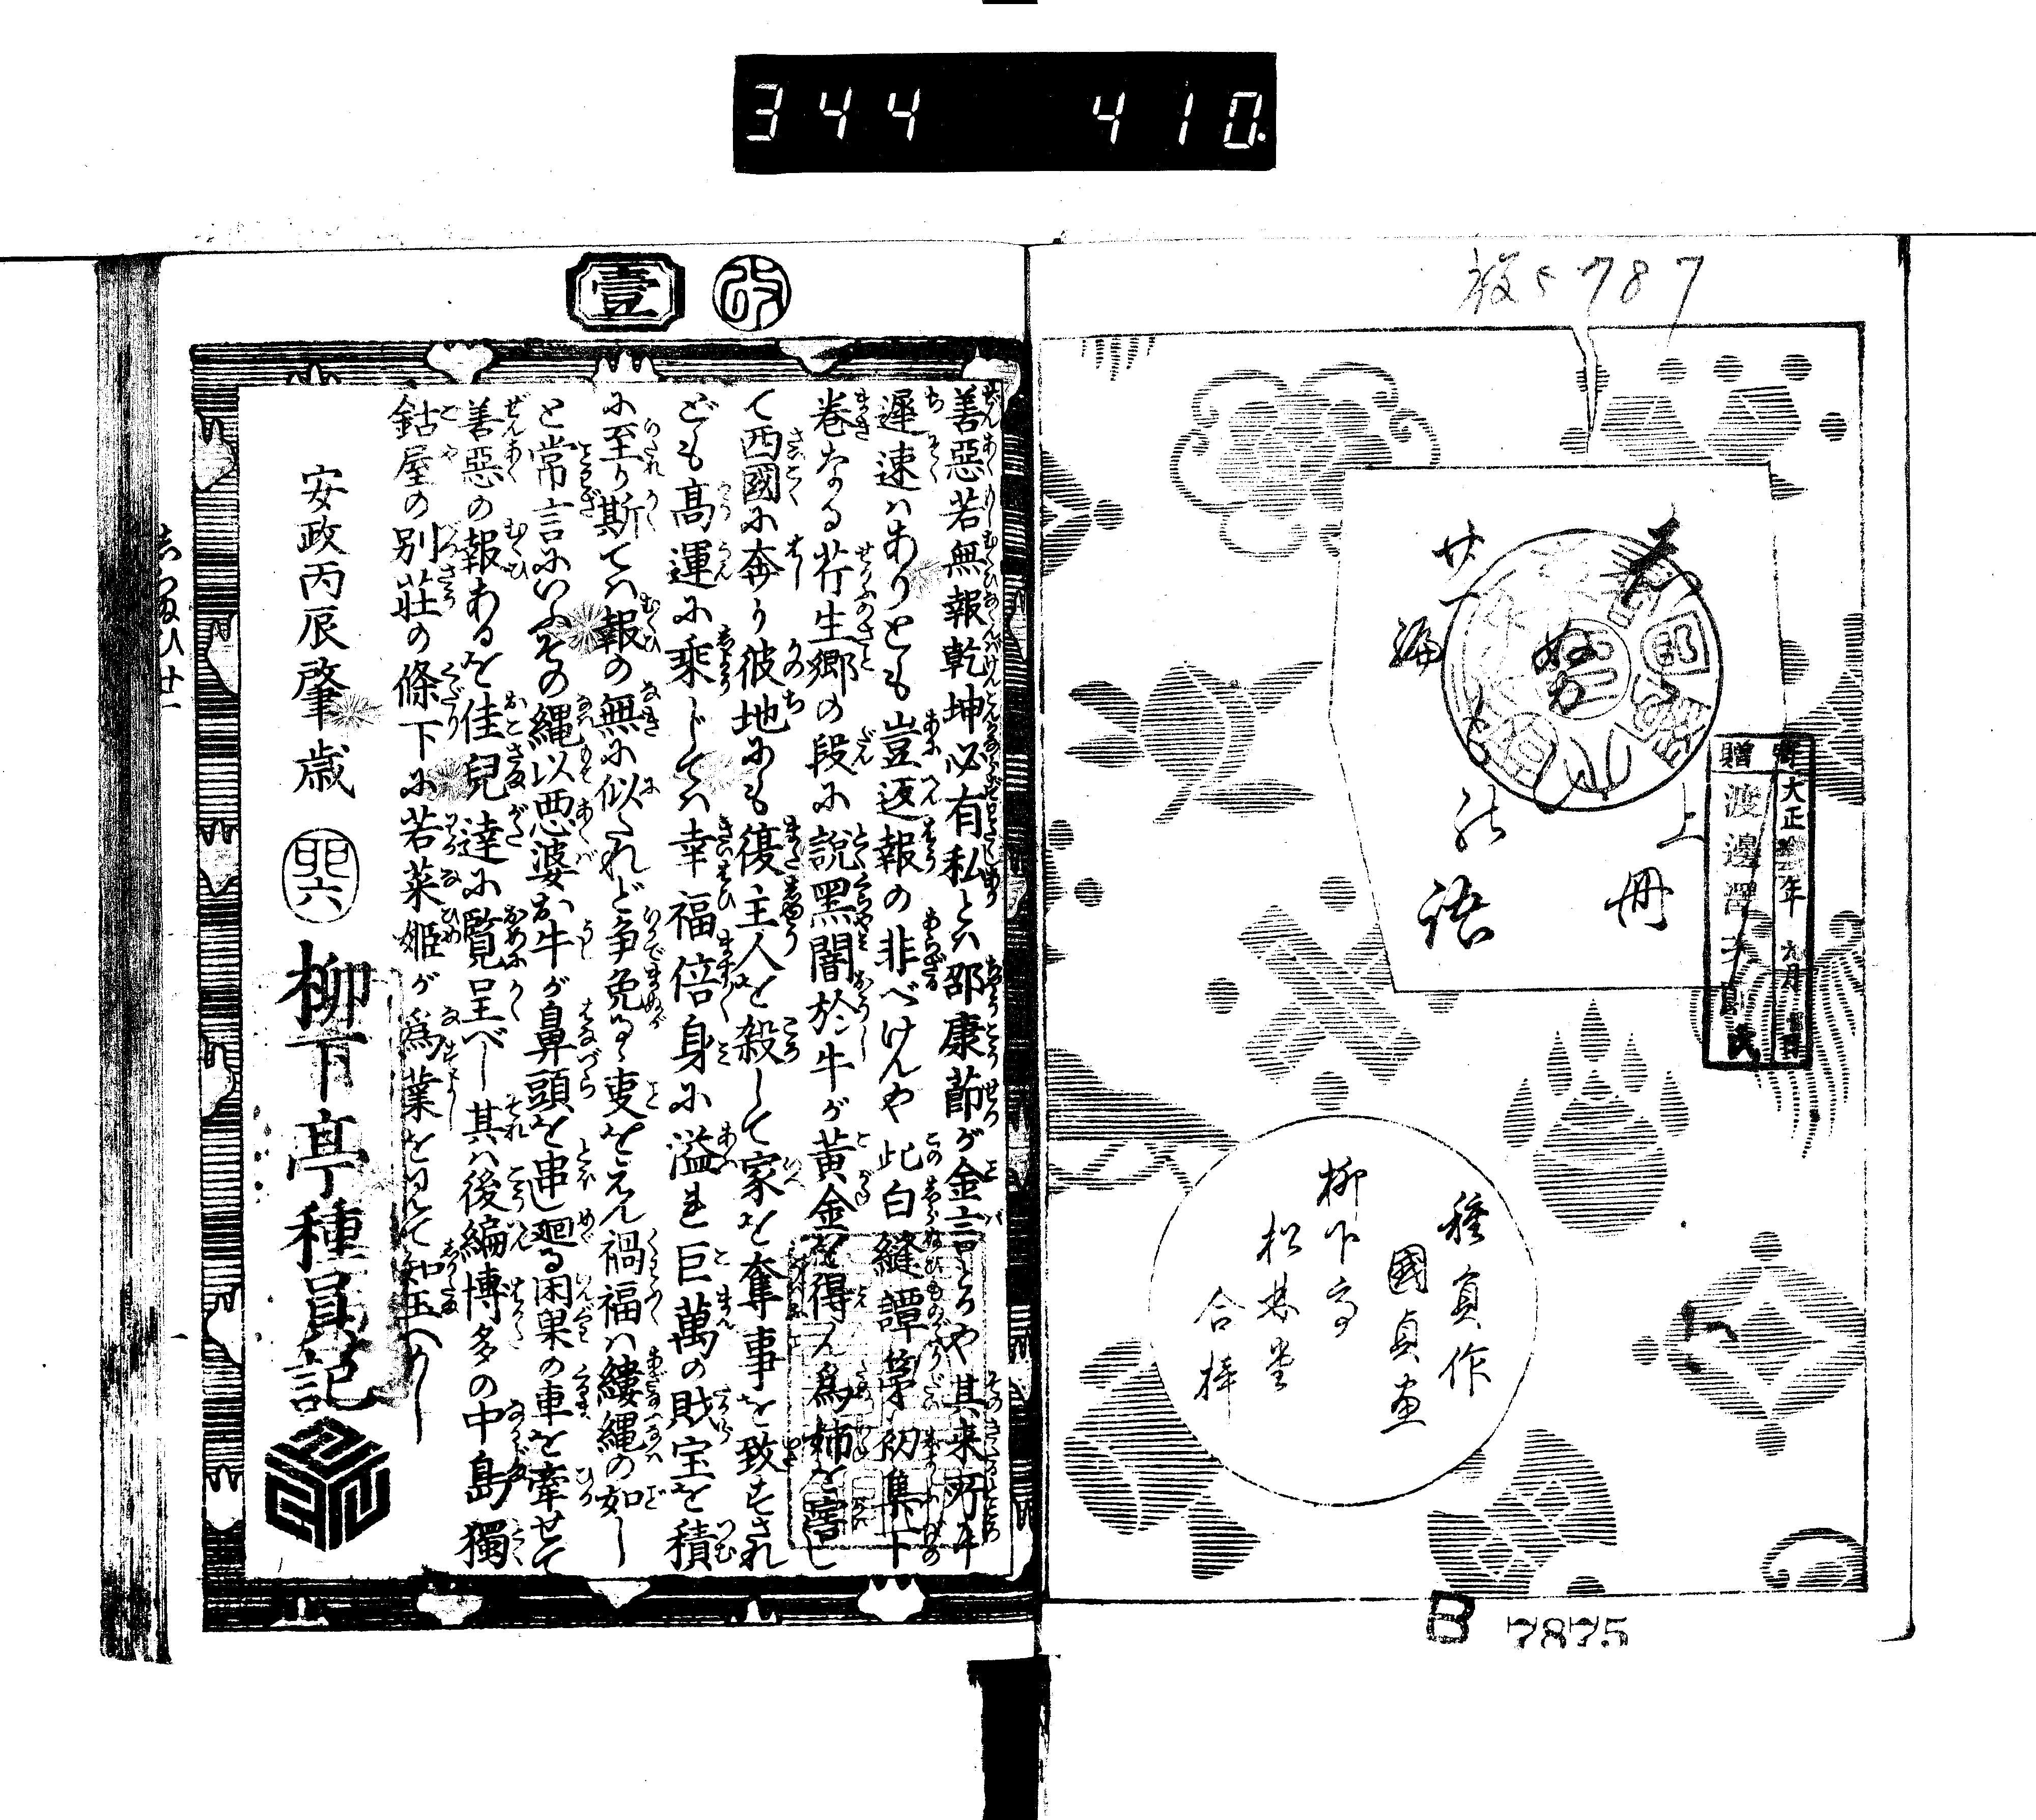 344 410.
787
上冊
廿一編
種員作
國貞画
柳下亭
松林堂
合梓
大正 年 九月
渡邊
B 7875
改
壹
善惡若無報乾坤必有私とハ邵康莭が金言とうや其来所に
遲速ハありとも豈返報の非べけんや此白縫譚第初集下
巻なる芹生郷の段に説黑闇於牛が黄金を得ん為姉を害し
て西國に奔り彼地にも復主人を殺して家を奪事を致すされ
ども高運に乘じてハ幸福倍身に溢れ巨萬の財宝を積
に至り斯てハ報の無に似たれど争免るゝ叓をえん禍福ハ縷縄の如し
と常言にいふその縄以悪婆お牛が鼻頭を串廻る因果の車を牽せて
善惡の報あるを佳兒達に覧呈べし其ハ後編博多の中島獨
鈷屋の別荘の條下に若菜姫が為業を見て知玉へかし
安政丙辰肇歳
柳下亭種員記
しらぬひ廿一